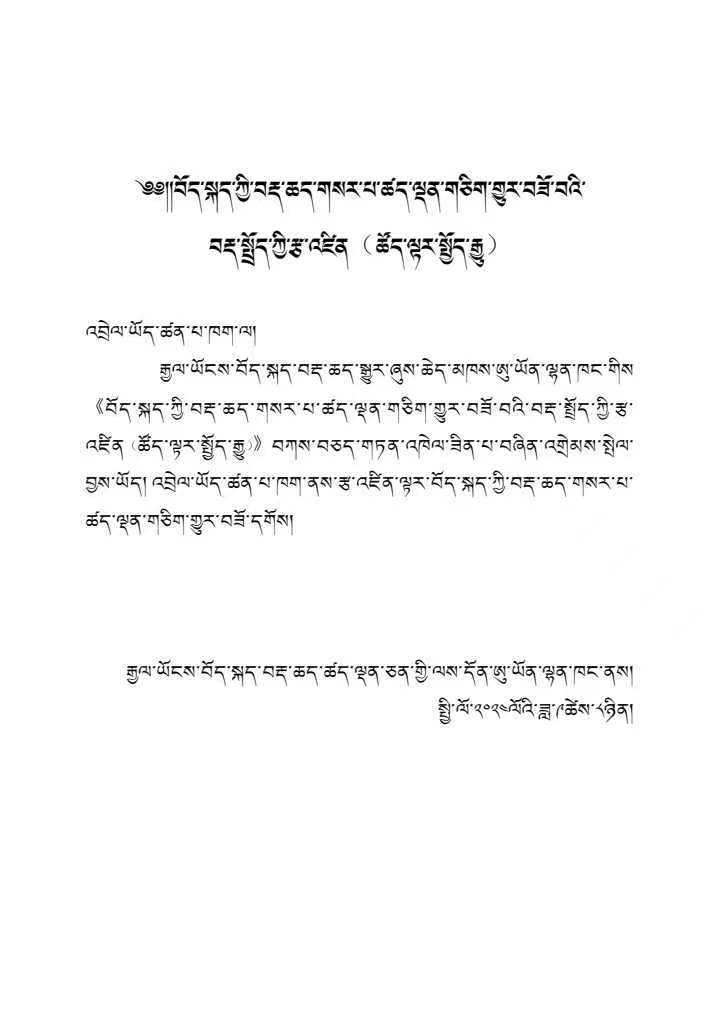 ༄༅།།བོད་སྐད་ཀྱི་བརྡ་ཆད་གསར་པ་ཚད་ལྡན་གཅིག་གྱུར་བཟོ་བའི་
བརྡ་སྤྲོད་ཀྱི་རྩ་འཛིན（ཚོད་ལྟར་སྤྱོད་རྒྱུ）
འབྲེལ་ཡོད་ཚན་པ་ཁག་ལ།
རྒྱལ་ཡོངས་བོད་སྐད་བརྡ་ཆད་སྒྱུར་ཞུས་ཆེད་མཁས་ཨུ་ཡོན་ལྷན་ཁང་གིས
《བོད་སྐད་ཀྱི་བརྡ་ཆད་གསར་པ་ཚད་ལྡན་གཅིག་གྱུར་བཟོ་བའི་བརྡ་སྤྲོད་ཀྱི་རྩ་
འཛིན（ཚོད་ལྟར་སྤྱོད་རྒྱུ）》བཀས་བཅད་གཏན་འཁེལ་ཟིན་པ་བཞིན་འགྲེམས་སྤེལ་
བྱས་ཡོད། འབྲེལ་ཡོད་ཚན་པ་ཁག་ནས་རྩ་འཛིན་ལྟར་བོད་སྐད་ཀྱི་བརྡ་ཆད་གསར་པ་
ཚད་ལྡན་གཅིག་གྱུར་བཟོ་དགོས།
རྒྱལ་ཡོངས་བོད་སྐད་བརྡ་ཆད་ཚད་ལྡན་ཅན་གྱི་ལས་དོན་ཨུ་ཡོན་ལྷན་ཁང་ནས།
སྤྱི་ལོ་༢༠༢༤ལོའི་ཟླ་༩ཚེས་༨ཉིན།